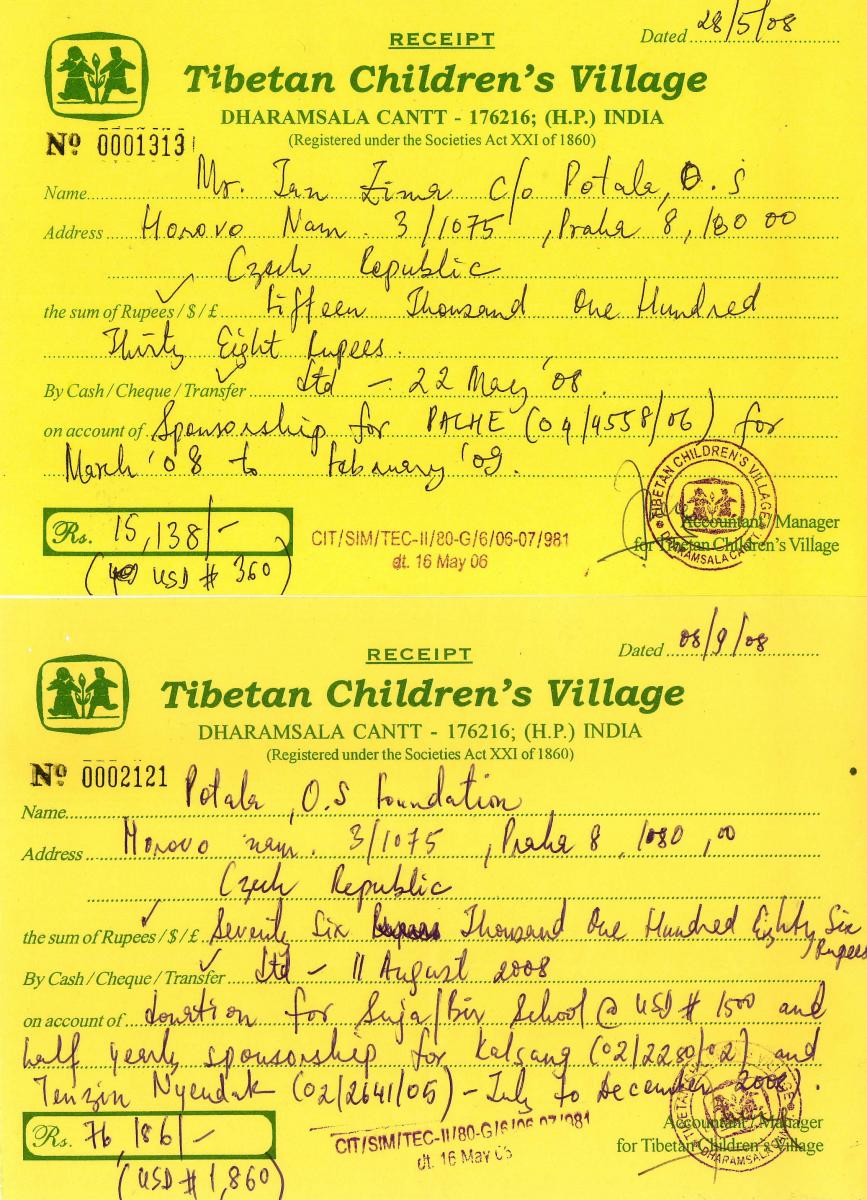 RECEIPT
Dated 28/5/08
Tibetan Children's Village
DHARAMSALA CANTT - 176216; (H.P.) INDIA
(Registered under the Societies Act XXI of 1860)
Nº 0001313
Name Mr. Jan Zima c/o Potala, O.S
Address Horovo Nam. 3/1075, Praha 8, 180 00
Czech Republic
the sum of Rupees / $ / £ Fifteen Thousand One Hundred
Thirty Eight Rupees.
By Cash / Cheque / Transfer Std - 22 May '08.
on account of Sponsorship for PACHE (04/4558/06) for
March '08 to February '09.
TIBETAN CHILDREN'S VILLAGE
DHARAMSALA CANTT.
Accountant / Manager
for Tibetan Children's Village
Rs. 15,138/-
CIT/SIM/TEC-II/80-G/6/06-07/981
dt. 16 May 06
(USD # 360)
RECEIPT
Dated 08/9/08
Tibetan Children's Village
DHARAMSALA CANTT - 176216; (H.P.) INDIA
(Registered under the Societies Act XXI of 1860)
Nº 0002121
Name Potala, O.S Foundation
Address Horovo nam. 3/1075, Praha 8, 1080,00
Czech Republic
the sum of Rupees / $ / £ Seventy Six Thousand One Hundred Eighty Six
Rupees
By Cash / Cheque / Transfer Std - 11 August 2008
on account of donation for Suja/Bir School @ USD # 1500 and
half yearly sponsorship for Kalsang (02/2280/02) and
Tenzin Nyendak (02/2641/05) - July to December 2008.
Accountant / Manager
for Tibetan Children's Village
Rs. 76,186/-
CIT/SIM/TEC-II/80-G/6/06-07/981
dt. 16 May 06
(USD # 1,860)